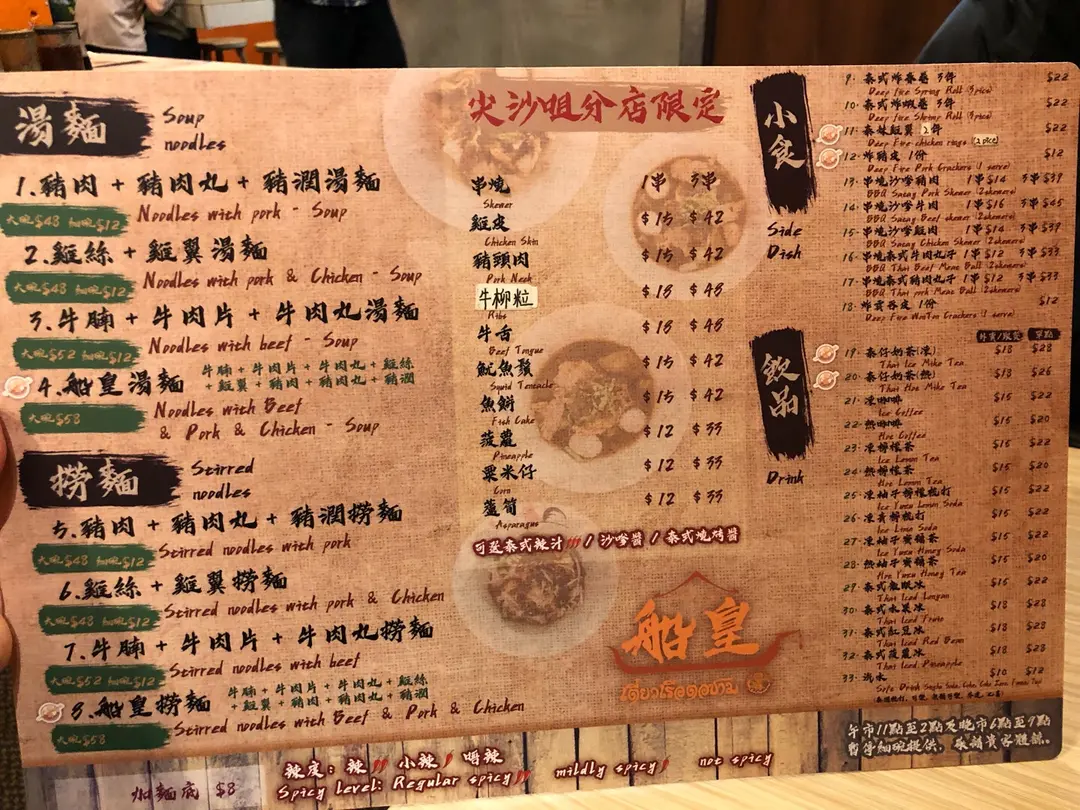 湯麵
Soup
noodles
1.豬肉 + 豬肉丸 + 豬潤湯麵
大碗$48 細碗$12
Noodles with pork - Soup
2.雞絲 + 雞翼湯麵
大碗$48 細碗$12
Noodles with pork & Chicken - Soup
3.牛腩 + 牛肉片 + 牛肉丸湯麵
大碗$52 細碗$12
Noodles with beef - Soup
4.船皇湯麵
牛腩 + 牛肉片 + 牛肉丸 + 雞絲
+ 雞翼 + 豬肉 + 豬肉丸 + 豬潤
大碗$58
Noodles with Beef
& Pork & Chicken - Soup
撈麵
Stirred
noodles
5.豬肉 + 豬肉丸 + 豬潤撈麵
大碗$48 細碗$12
Stirred noodles with pork
6.雞絲 + 雞翼撈麵
大碗$48 細碗$12
Stirred noodles with pork & Chicken
7.牛腩 + 牛肉片 + 牛肉丸撈麵
大碗$52 細碗$12
Stirred noodles with beef
8.船皇撈麵
牛腩 + 牛肉片 + 牛肉丸 + 雞絲
+ 雞翼 + 豬肉 + 豬肉丸 + 豬潤
大碗$58
Stirred noodles with Beef & Pork & Chicken
加麵底 $8
尖沙咀分店限定
串燒 1串 3串
Skewer
雞皮 $15 $42
Chicken Skin
豬頸肉 $15 $42
Pork Neck
牛柳粒 $18 $48
Ribs
牛舌 $18 $48
Beef Tongue
魷魚鬚 $15 $42
Squid Tentacle
魚餅 $15 $42
Fish Cake
菠蘿 $12 $33
Pineapple
粟米仔 $12 $33
Corn
蘆筍 $12 $33
Asparagus
可選泰式辣汁 / 沙嗲醬 / 泰式燒烤醬
船皇
辣度: 辣 小辣 唔辣
Spicy Level: Regular spicy mildly spicy not spicy
小食
Side
Dish
9. 泰式炸春卷 3件 $22
Deep Fire Spring Roll (3pice)
10. 泰式炸蝦卷 3件 $22
Deep Fire Shrimp Roll (3pice)
11. 泰妹雞翼 2件 $22
Deep Fire chicken rings (2 pice)
12. 炸豬皮 1份 $12
Deep Fire Pork Crackers (1 serve)
13. 串燒沙嗲豬肉 1串$14 3串$39
BBQ Satay Pork Skewer
14. 串燒沙嗲牛肉 1串$16 3串$45
BBQ Satay Beef skewer
15. 串燒沙嗲雞肉 1串$14 3串$39
BBQ Satay Chicken Skewer
16. 串燒泰式牛肉丸子 1串$12 3串$33
BBQ Thai Beef Meat Ball
17. 串燒泰式豬肉丸子 1串$12 3串$33
BBQ Thai pork Meat Ball
18. 炸雲吞皮 1份 $12
Deep Fire WonTon Crackers (1 serve)
飲品
Drink
19. 泰仔奶茶(凍) $18 $28
Thai Ice Milk Tea
20. 泰仔奶茶(熱) $18 $26
Thai Hot Milk Tea
21. 凍咖啡 $15 $22
Ice Coffee
22. 熱咖啡 $15 $20
Hot Coffee
23. 凍檸檬茶 $15 $22
Ice Lemon Tea
24. 熱檸檬茶 $15 $20
Hot Lemon Tea
25. 凍柚子檸檬梳打 $15 $22
26. 凍青檸梳打 $15 $22
Ice Lime Soda
27. 凍柚子蜜糖茶 $15 $22
28. 熱柚子蜜糖茶 $15 $20
29. 泰式龍眼冰 $15 $22
Thai Iced Longan
30. 泰式水果冰 $18 $28
31. 泰式紅豆冰 $18 $28
Thai Iced Red Bean
32. 泰式菠蘿冰 $18 $28
Thai Iced Pineapple
33. 汽水 $10 $12
午市11點至2點及晚市6點至9點
暫停細碗提供，敬請貴客體諒。